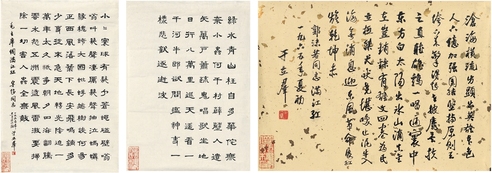 小=寰球有幾個蒼蠅碰壁
嗡嗡叫幾聲淒厲幾聲抽泣螞蟻
緣槐誇大國蚍蜉撼樹談何易
正西風落葉下長安飛鳴鏑多
少事從來急天地轉光陰迫一
萬年太久只爭朝夕四海翻騰
雲水怒五洲震盪風雷激要掃
除一切害人蟲全無敵
綠水青山枉自多華佗無
奈小蟲何千村薜荔人遺
矢萬戶蕭疏鬼唱歌坐地
日行八萬里巡天遙看一
千河牛郎欲問瘟神事一
樣悲歡逐逝波
滄海橫流方顯出英雄本色
人六億加強團結堅持原則天
垮下來擎得起世披靡矣扶
之直聽雄雞一唱遍寰中
東方白太陽出冰山滴真金
在豈銷鑠有雄文四卷為民
立極桀犬吠堯堪笑止泥牛入
海無消息迎東風革命展紅
旗乾坤赤
郭沫若同志滿江紅
一九六五年
于立群